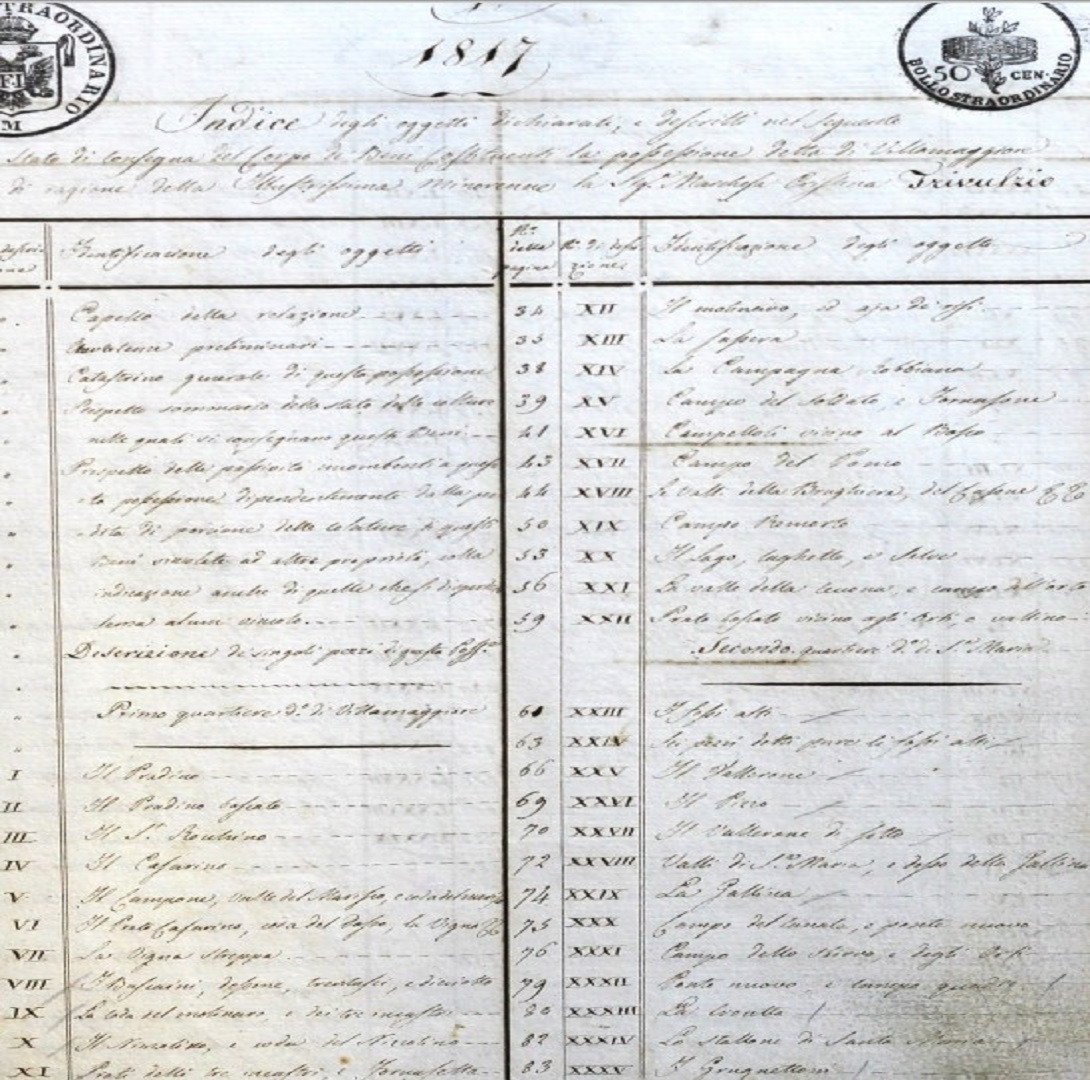 STRAORDINARIO
F.I
M
1817
50 CEN.
BOLLO STRAORDINARIO
Indice degli oggetti dichiarati, e descritti nel seguente
Stato di consegna del Corpo di Beni costituenti la possessione detta di Villamaggiore
di ragione della Illustrissima Minorenne la Sig.ª Marchesa Cristina Trivulzio
Identificazione degli oggetti
Capello della relazione
preliminari
Catastrino generale di questa possessione
Prospetto sommario dello stato delle colture
nelle quali si consegnano questi Beni
Prospetto delle passività incombenti a
possessione dipendentemente dalla
di porzione delle
Beni vincolate ad altre proprietà, colla
indicazione anche di quelle
senza alcun vincolo
Descrizione de' singoli pezzi di questa
Primo quartiere d.º di Villamaggiore
I Il Pradino
II Il Pradino boscato
III Il S.n Rocchino
IV Il Casarino
V Il Campone,
VI Il Prato Casarino, coda del Dosso, la Vigna
VII La Vigna Stroppa
VIII
IX La coda del molinaro, e dei tre incastri
X Il Nizzolino, e coda del Nizzolino
XI Prati delli tre incastri, e Fornasetta
N.º della pagina
N.º di descrizione
Identificazione degli oggetti
34 XII Il molinaro, ed aja de'
35 XIII La
38 XIV La Campagna Robbiana
39 XV Campo del Soldato, e Fornasone
41 XVI Campelloli vicino al Bosco
43 XVII Campo del Pomo
44 XVIII Le valli della Brughiera, del Casone
50 XIX Campo Remorto
53 XX Il Lago, Laghetto, e Selve
56 XXI La valle della e campo dell'orto
59 XXII Prato boscato vicino agli Orti, e vallino
Secondo quartiere d.º di S.ta Maria
61 XXIII I fossi alti
63 XXIV Li pezzi detti pure li fossi alti
66 XXV Il Vallerane
69 XXVI Il Pizzo
70 XXVII Il Vallerane di sotto
72 XXVIII Valli di S.ta Maria, e dosso della Gallina
74 XXIX La Gallina
75 XXX Campo del Canale, e ponte nuovo
76 XXXI Campo dello e degli Orti
79 XXXII Ponte nuovo, e campo quadro
80 XXXIII La
82 XXXIV Lo Stallone di Santa Maria
83 XXXV I Grugnettoni